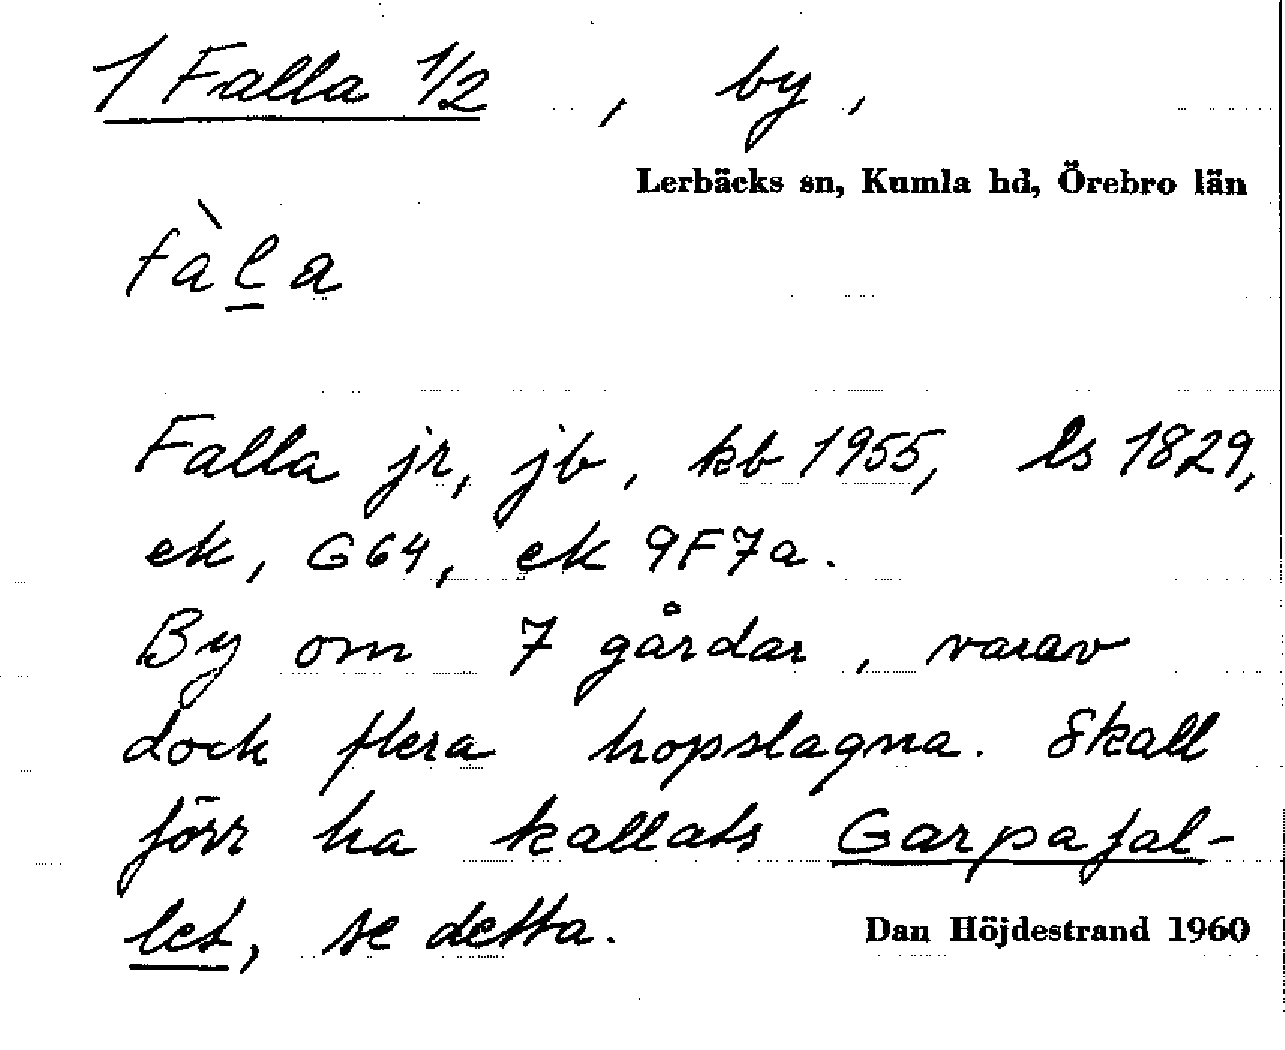 1 Falla 1/2, by,
Lerbäcks sn, Kumla hd, Örebro län
fàḻa
Falla jr, jb, kb 1955, ls 1829,
ek, G64, ek 9F7a.
By om 7 gårdar, varav
dock flera hopslagna. Skall
förr ha kallats Garpafal-
let, se detta.
Dan Höjdestrand 1960